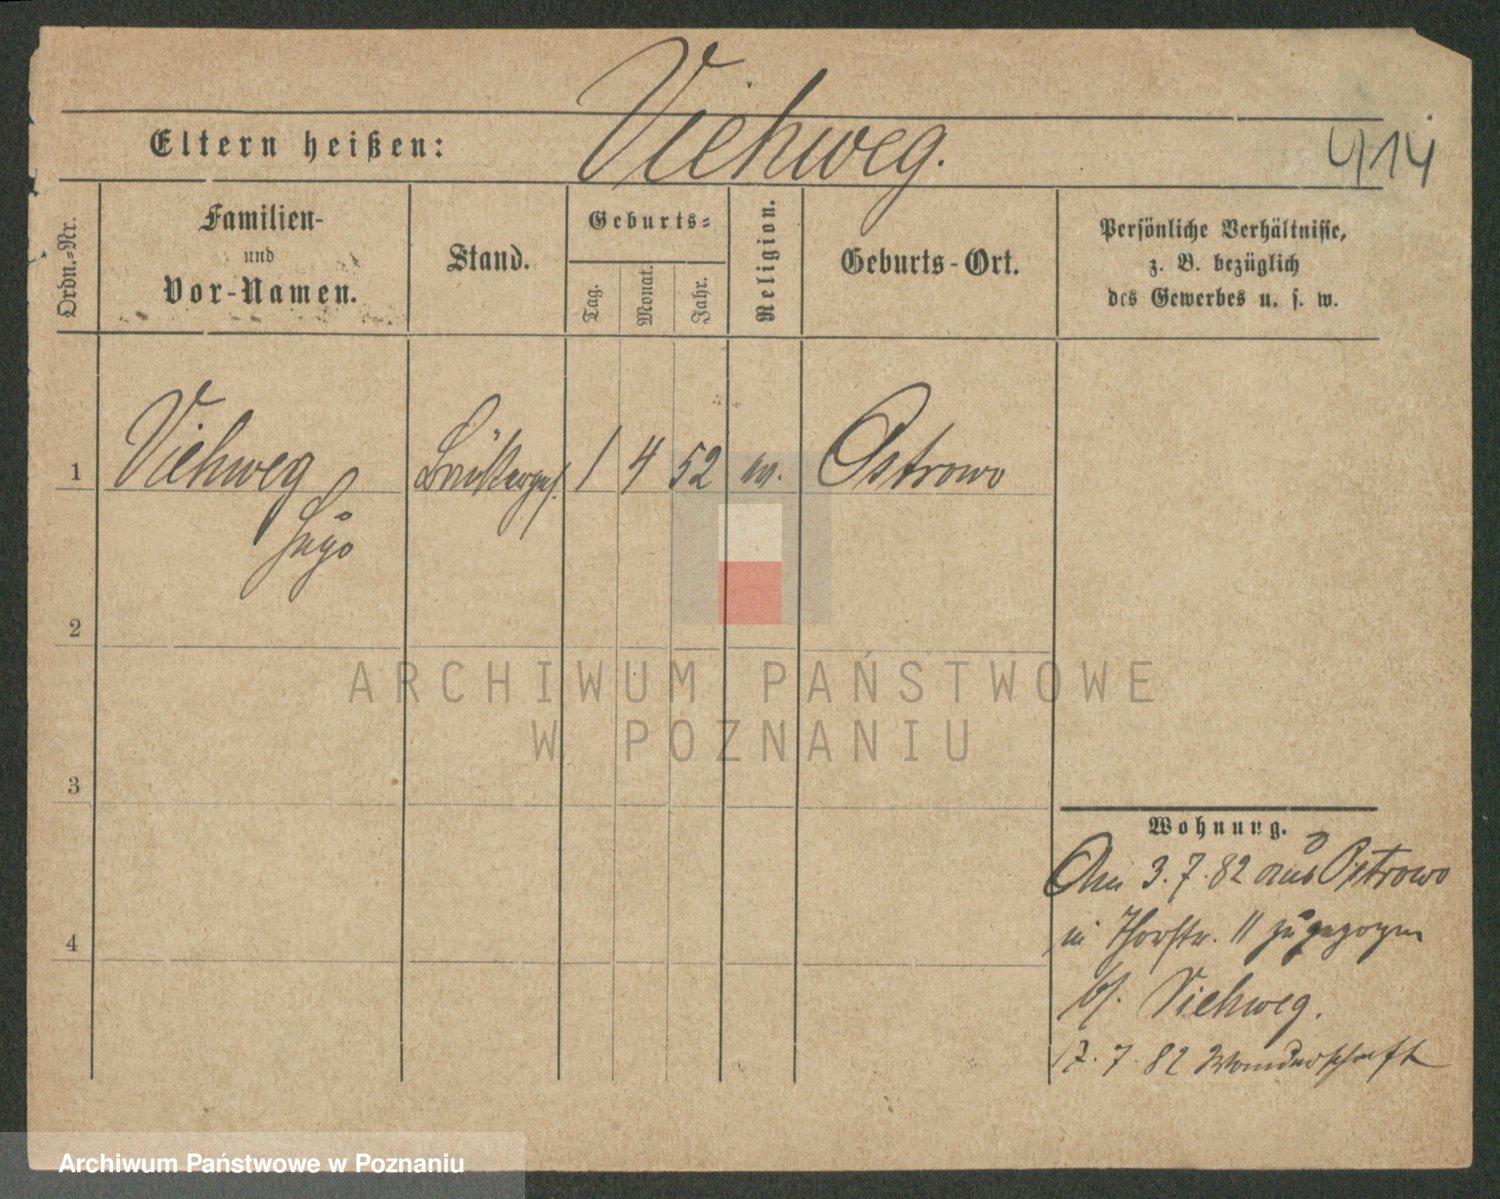 Viehweg.
Eltern heißen:
914
Ordn.-Nr.
Familien-
und
Vor-Namen.
Stand.
Geburts-
Tag.
Monat.
Jahr.
Religion.
Geburts-Ort.
Persönliche Verhältnisse,
z. B. bezüglich
des Gewerbes u. s. w.
1 Viehweg 1 4 52 Ostrowo
Hugo
2
3
4
Wohnung.
3.7.82 aus Ostrowo
in Thorstr. 11 zugezogen
bei Viehweg.
17.7.82 Wanderschaft
ARCHIWUM PAŃSTWOWE
W POZNANIU
Archiwum Państwowe w Poznaniu